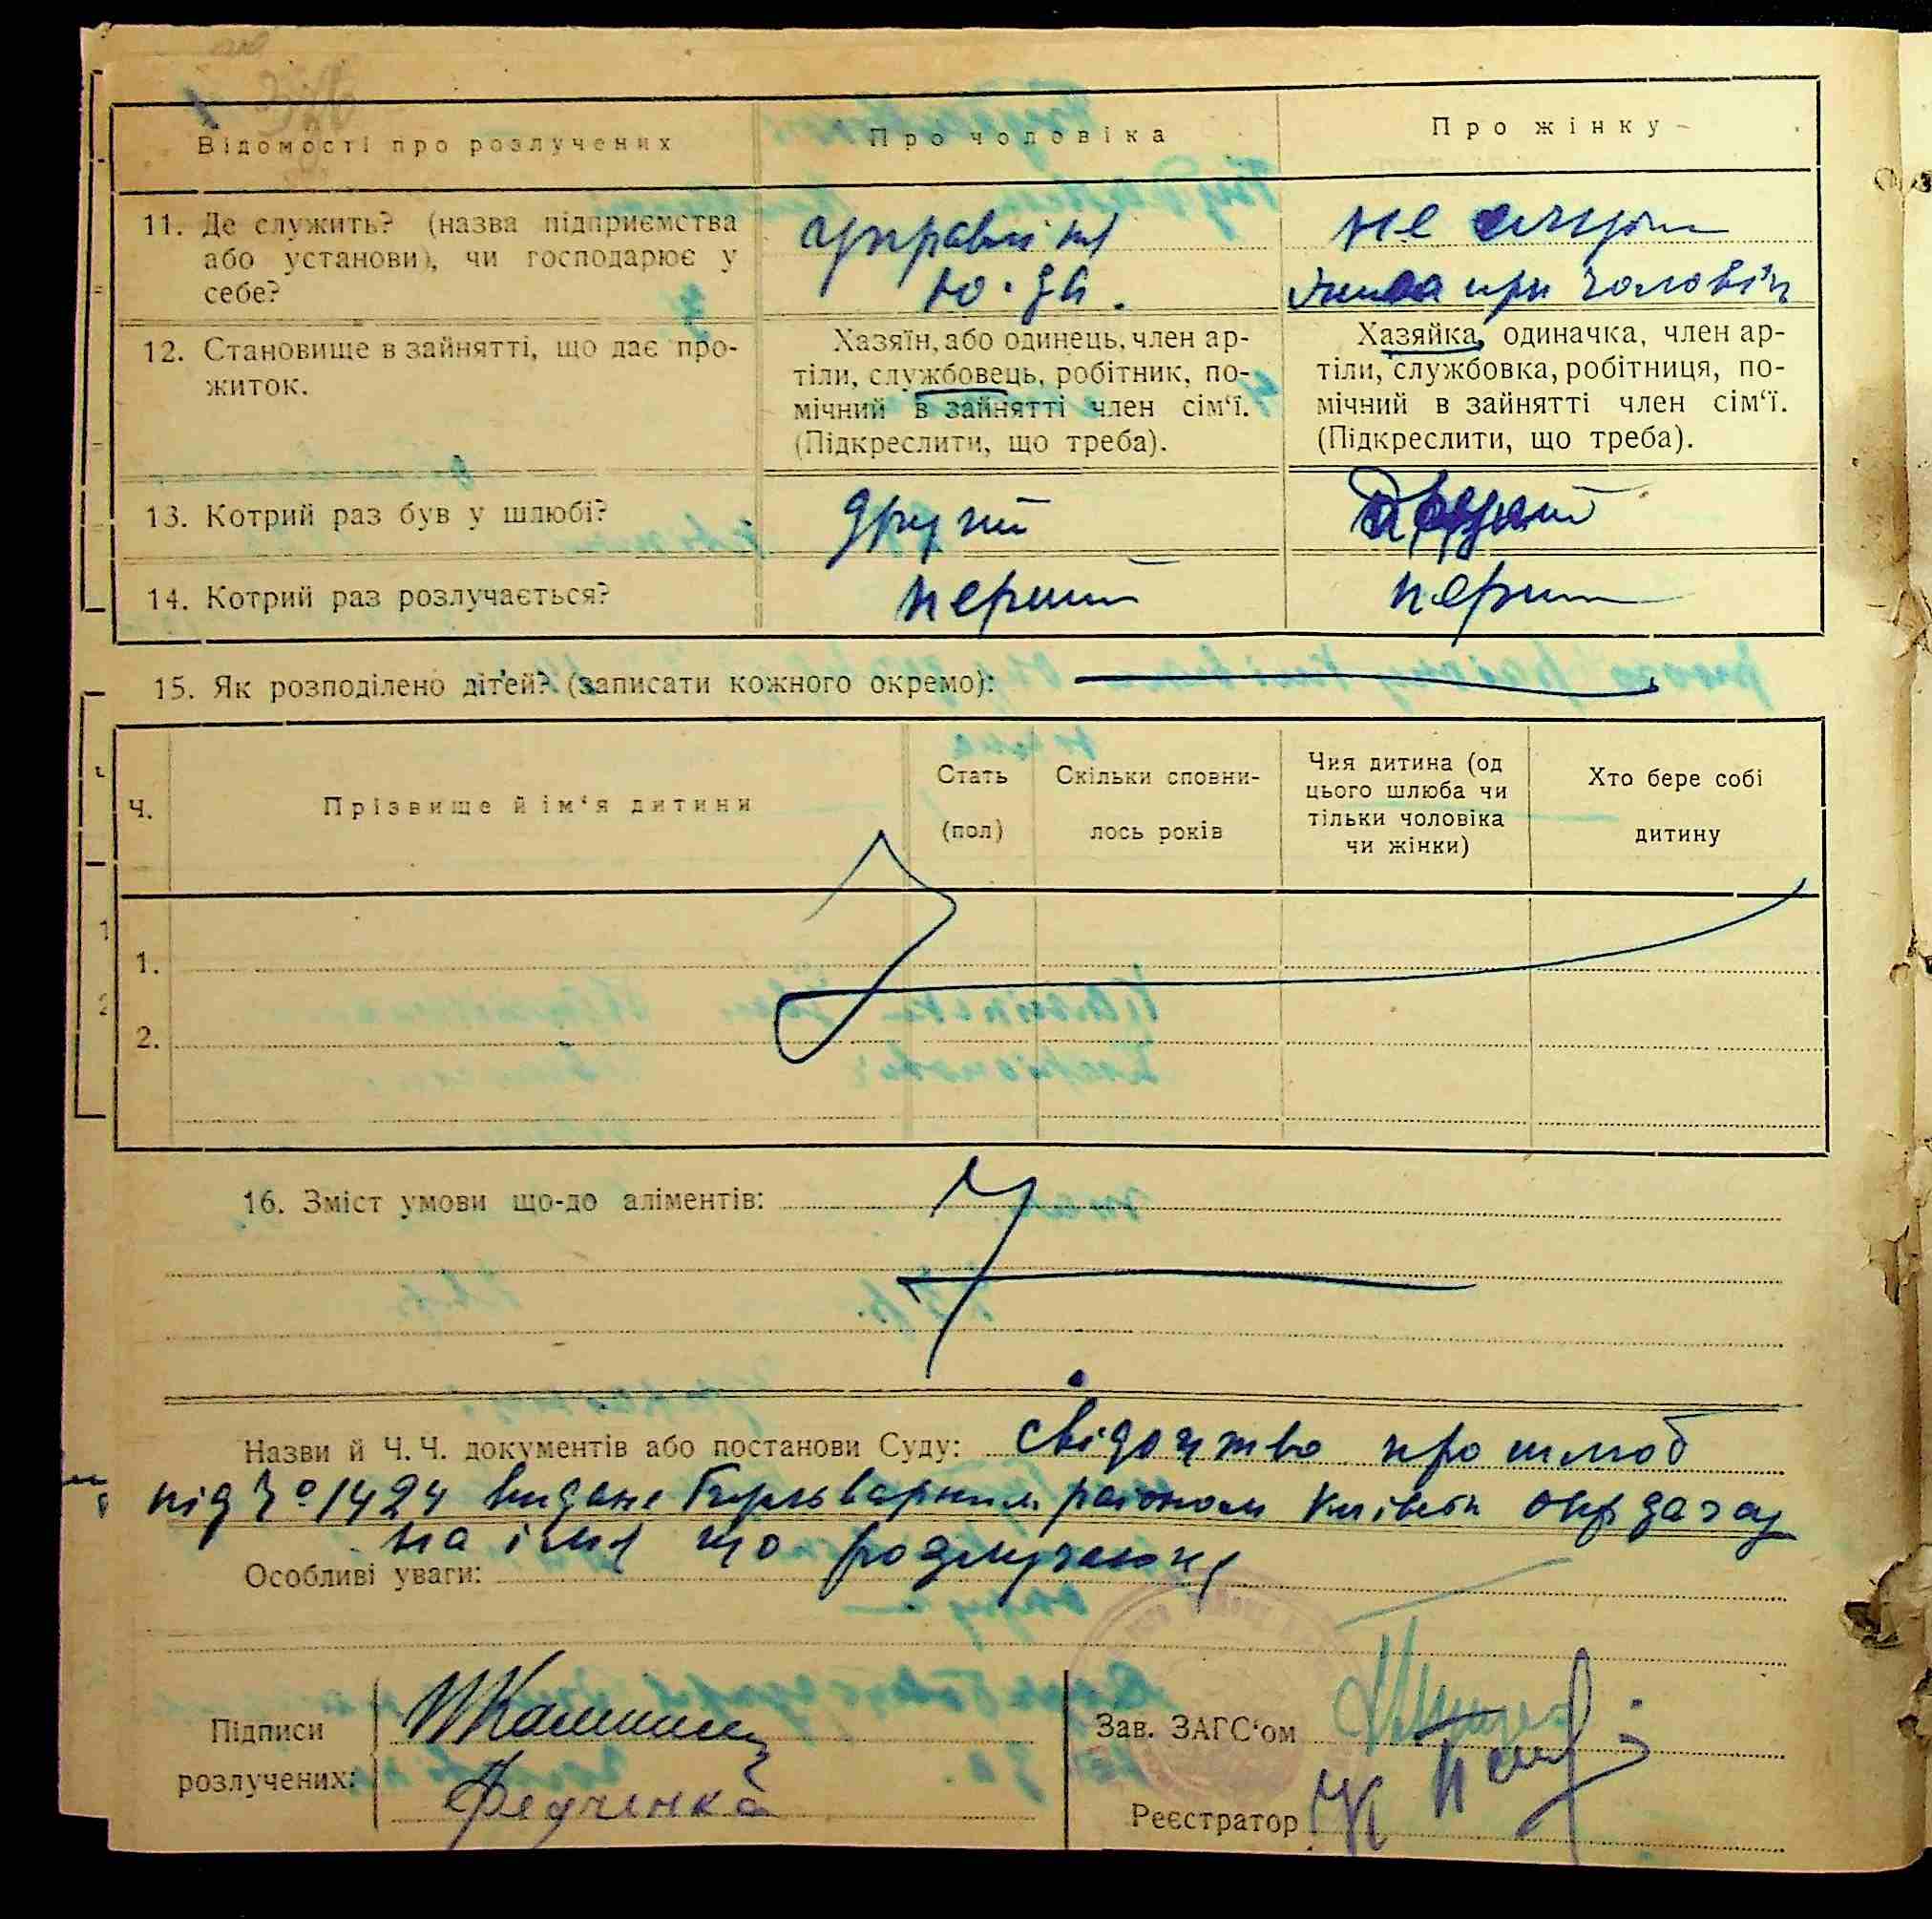 Відомості про розлучених
Про чоловіка
Про жінку
11. Де служить? (назва підприємства
або установи), чи господарює у
себе?
управлінн
не служить
при чоловікові
12. Становище в зайнятті, що дає про-
житок.
Хазяїн, або одинець, член ар-
тіли, службовець, робітник, по-
мічний в зайнятті член сім‘ї.
(Підкреслити, що треба).
Хазяйка, одиначка, член ар-
тіли, службовка, робітниця, по-
мічний в зайнятті член сім‘ї.
(Підкреслити, що треба).
13. Котрий раз був у шлюбі?
другий
14. Котрий раз розлучається?
перший
перший
15. Як розподілено дітей? (записати кожного окремо):
Ч.
Прізвище й ім‘я дитини
Стать
(пол)
Скільки сповни-
лось років
Чия дитина (од
цього шлюба чи
тільки чоловіка
чи жінки)
Хто бере собі
дитину
1.
2.
16. Зміст умови що-до аліментів:
Назви й Ч. Ч. документів або постанови Суду: свідоцтво про шлюб
під Ч° 1424 видане районом Київськ Окр
на імя що розлучаюця
Особливі уваги:
Підписи
розлучених:
Федченка
Зав. ЗАГС‘ом
Реєстратор